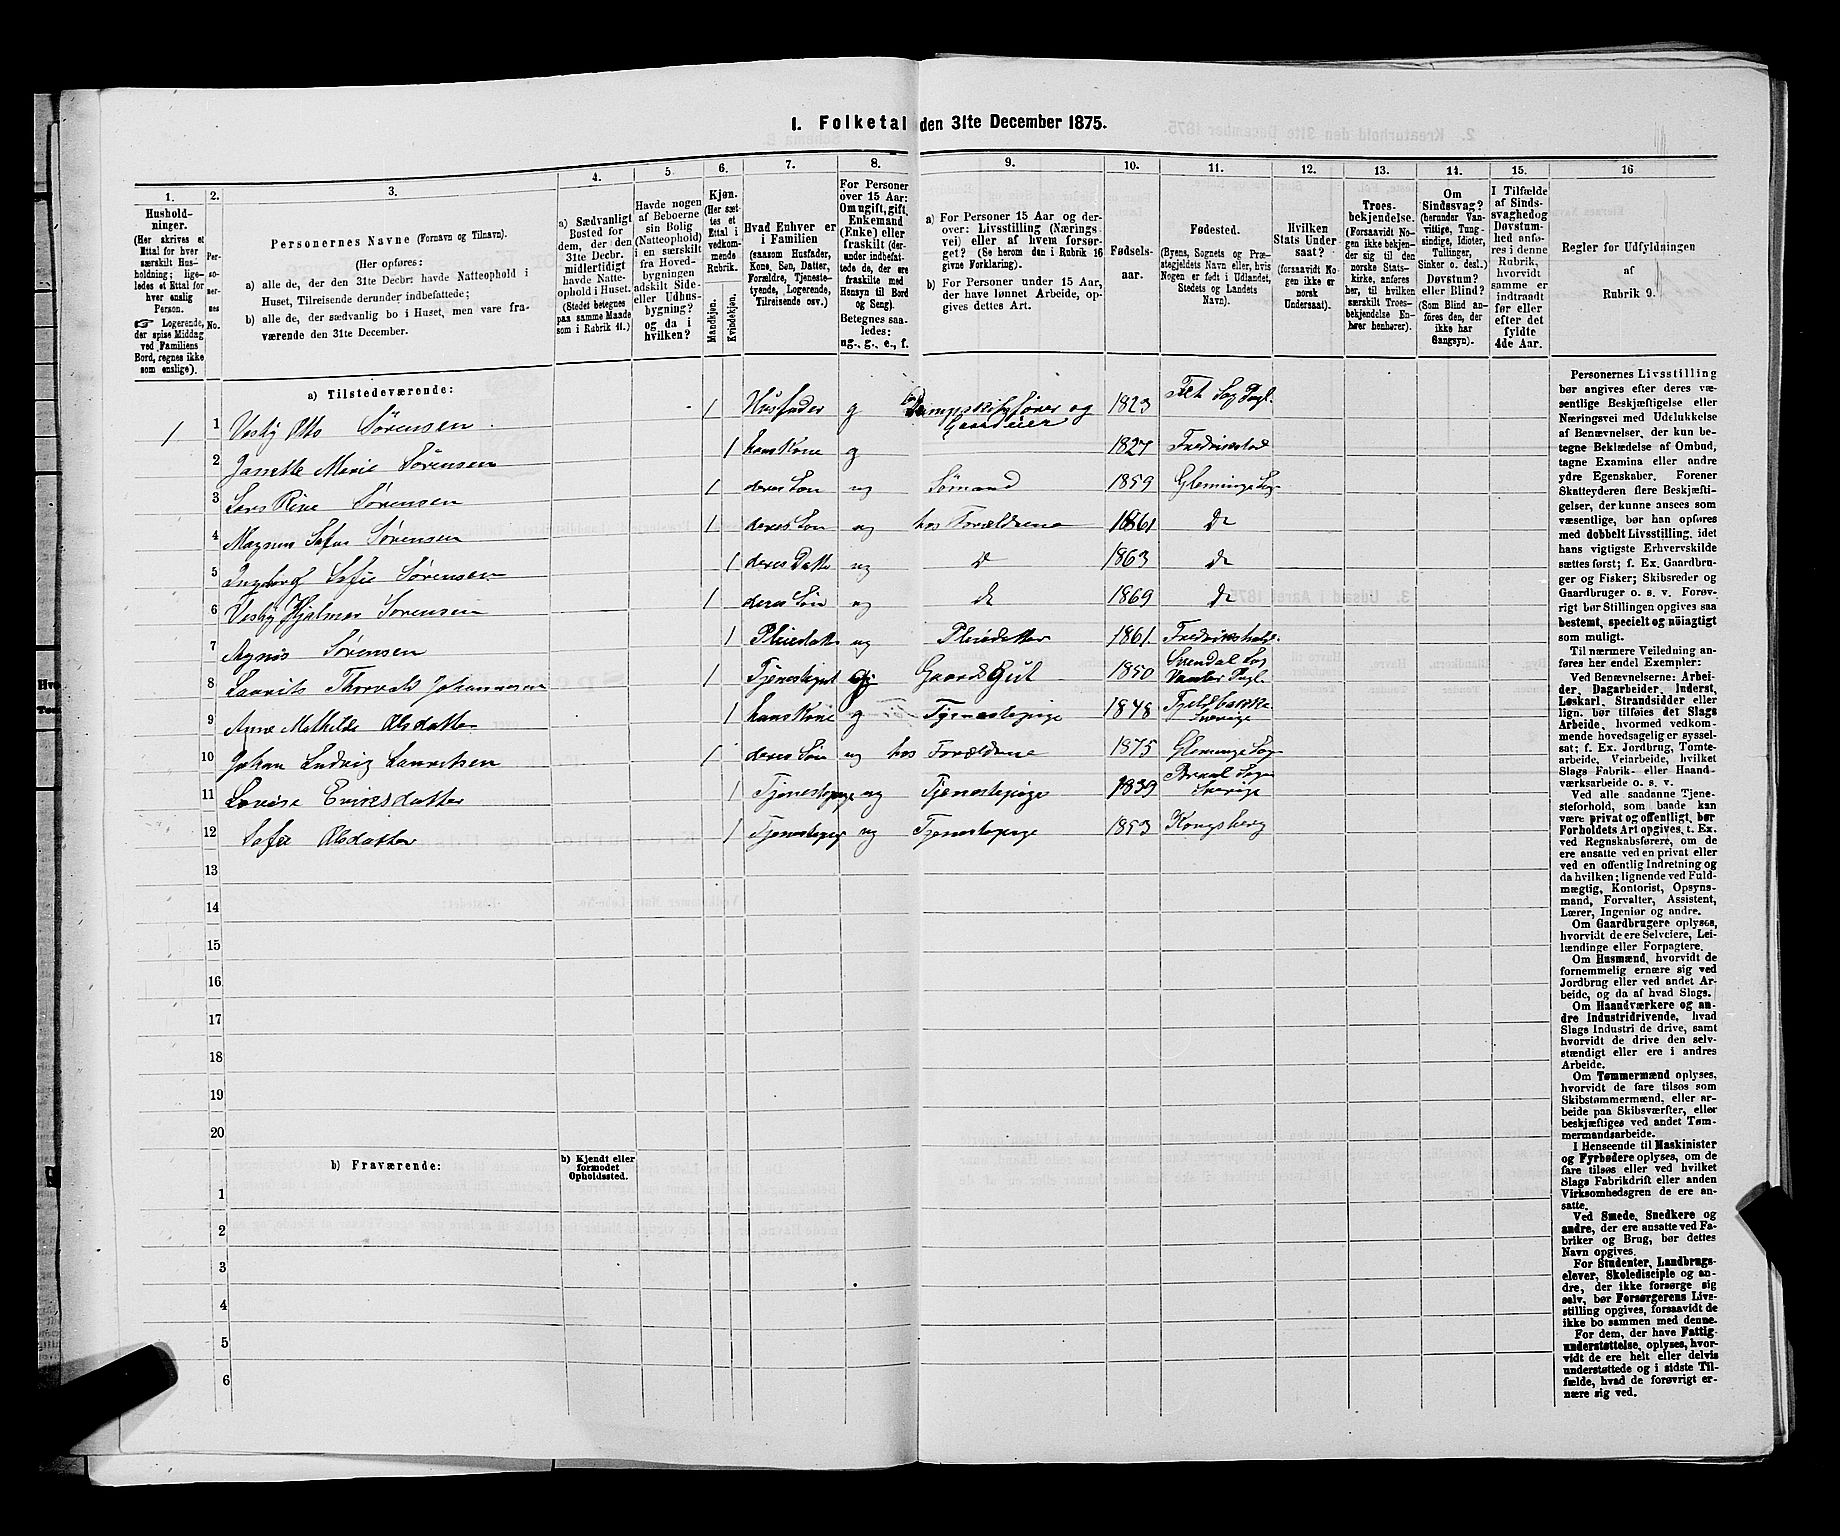 1. Folketal den 31te December 1875.
1.
2.
3.
4.
5.
6.
7.
8.
9.
10.
11.
12.
13.
14.
15.
16
Hushold-
ninger.
(Her skrives et
Ettal for hver
særskilt Hus-
holdning; lige-
ledes et Ettal for
hver enslig
Person.
☞ Logerende,
der spise Middag
ved Familiens
Bord, regnes ikke
som enslige).
Per-
so-
ner-
nes
No.
Personernes Navne (Fornavn og Tilnavn).
(Her opføres:
a) alle de, der den 31te Decbr. havde Natteophold i
Huset, Tilreisende derunder indbefattede;
b) alle de, der sædvanlig bo i Huset, men vare fra-
værende den 31te December.
a) Sædvanligt
Bosted for
dem, der den
31te Decbr.
midlertidigt
havde Natte-
ophold i Huset.
(Stedet betegnes
paa samme Maade
som i Rubrik 11.)
Havde nogen
af Beboerne
sin Bolig
(Natteophold)
i en særskilt
fra Hoved-
bygningen
adskilt Side-
eller Udhus-
bygning?
og da i
hvilken?
Kjøn.
(Her sæt-
tes et
Ettal i
vedkom-
mende
Rubrik.
Mandkjøn.
Kvindekjøn.
Hvad Enhver er
i Familien
(saasom Husfader,
Kone, Søn, Datter,
Forældre, Tjeneste-
tyende, Logerende,
Tilreisende osv.)
For Personer
over 15 Aar:
Om ugift, gift,
Enkemand
(Enke) eller
fraskilt (der-
under indbefat-
tede de, der ere
fraskilte med
Hensyn til Bord
og Seng).
Betegnes saa-
ledes:
ug., g., e., f.
a) For Personer 15 Aar og der-
over: Livsstilling (Nærings-
vei) eller af hvem forsør-
get? (Se herom den i Rubrik 16
givne Forklaring).
b) For Personer under 15 Aar,
der have lønnet Arbeide, op-
gives dettes Art.
Fødsels-
aar.
Fødested.
(Byens, Sognets og Præ-
stegjeldets Navn eller, hvis
Nogen er født i Udlandet,
Stedets og Landets
Navn).
Hvilken
Stats Under-
saat?
(forsaavidt No-
gen ikke er
norsk
Undersaat).
Troes-
bekjendelse.
(Forsaavidt No-
gen ikke bekjen-
der sig til den
norske Stats-
kirke, anføres
her, til hvilken
særskilt Troes-
bekjendelse En-
hver henhører).
Om
Sindssvag?
(herunder Van-
vittige, Tung-
sindige, Idioter,
Tullinger,
Sinker o. desl.)
Døvstum?
eller Blind?
(Som Blind an-
føres den, der
ikke har
Gangsyn).
I Tilfælde
af Sinds-
svaghed og
Døvstum-
hed anfø-
res i denne
Rubrik,
hvorvidt
samme er
indtraadt
før eller
efter det
fyldte
4de Aar.
Regler for Udfyldningen
af
Rubrik 9.
a) Tilstedeværende:
1 1 Vesby Otto Sørensen 1 Husfader g Dampskibsfører og Gaardeier 1823 Fet Sog Pgl.
2 Janette Marie Sørensen 1 hans Kone g 1827 Fredrikstad
3 Lars Rine Sørensen 1 deres Søn ug Sømand 1859 Glemminge Sog
4 Magnus Sørensen 1 deres Søn ug hos Forældrene 1861 Do
5 Ingeborg Sofie Sørensen 1 deres Datter ug Do 1863 Do
6 Vesby Hjalmar Sørensen 1 deres Søn ug Do 1869 Do
7 Agnes Sørensen 1 Pleiedatter ug Pleiedatter 1861 Fredrikshald
8 Laurits Thorvald Johannesen 1 Tjenestegut g Gaards Gut 1850
9 Anne Mathilde Olsdatter 1 hans Kone g Tjenestepige 1848 Fjeldbakke Sverige
10 Johan Ludvig Lauritsen 1 deres Søn ug hos Forældrene 1875 Glemminge Sog
11 Lovise Erinsdatter 1 Tjenestepige ug Tjenestepige 1839 Sverige
12 Sofie Olsdatter 1 Tjenestepige ug Tjenestepige 1853 Kongsberg
13
14
15
16
17
18
19
20
b) Fraværende:
b) Kjendt eller
formodet
Opholdssted.
1
2
3
4
5
6
Personernes Livsstilling
bør angives efter deres væ-
sentlige Beskjæftigelse eller
Næringsvei med Udelukkelse
af Benævnelser, der kun be-
tegne Beklædelse af Ombud,
tagne Examina eller andre
ydre Egenskaber. Forener
Skatteyderen flere Beskjæfti-
gelser, der kunne ansees som
væsentlige, bør han opføres
med dobbelt Livsstilling, idet
hans vigtigste Erhvervskilde
sættes først; f. Ex. Gaardbru-
ger og Fisker; Skibsreder og
Gaardbruger o. s. v. Forøv-
rigt bør Stillingen opgives saa
bestemt, specielt og nøiagtigt
som muligt.
Til nærmere Veiledning an-
føres her endel Exempler:
Ved Benævnelserne: Arbei-
der, Dagarbeider, Inderst,
Løskarl, Strandsidder eller
lign. bør tilføies det Slags
Arbeide, hvormed vedkom-
mende hovedsagelig er syssel-
sat; f. Ex. Jordbrug, Tomte-
arbeide, Veiarbeide, hvilket
Slags Fabrik- eller Haand-
værksarbeide o. s. v.
Ved alle saadanne Tjene-
steforhold, som baade kan
være privat og offentligt, bør
Forholdets Art opgives, t. Ex.
ved Regnskabsførere, om de
ere ansatte ved en privat eller
ved en offentlig Indretning og
da hvilken; lignende ved Fuld-
mægtig, Kontorist, Opsyns-
mand, Forvalter, Assistent,
Lærer, Ingeniør og andre.
Om Gaardbrugere oplyses,
hvorvidt de ere Selveiere, Lei-
lændinge eller Forpagtere.
Om Husmænd, hvorvidt de
fornemmelig ernære sig ved
Jordbrug eller ved andet Ar-
beide, og da af hvad Slags.
Om Haandværkere og an-
dre Industridrivende, hvad
Slags Industri de drive, samt
hvorvidt de drive den selv-
stændigt eller ere i andres
Arbeide.
Om Tømmermænd oplyses,
hvorvidt de fare tilsøs som
Skibstømmermænd, eller ar-
beide paa Skibsværfter, eller
beskjæftiges ved andet Tøm-
mermandsarbeide.
I Henseende til Maskinister
og Fyrbødere oplyses, om de
fare tilsøs eller ved hvilket
Slags Fabrikdrift eller anden
Virksomhedsgren de ere an-
satte.
Ved Smede, Snedkere og
andre, der ere ansatte ved Fa-
briker og Brug, bør dettes
Navn opgives.
For Studenter, Landbrugs-
elever, Skoledisciple og an-
dre, der ikke forsørge sig
selv, bør Forsørgerens Livs-
stilling opgives, forsaavidt de
ikke bo sammen med denne.
For dem, der have Fattig-
understøttelse, oplyses, hvor-
vidt de ere helt eller delvis
understøttede og i sidste Til-
fælde, hvad de forøvrigt er-
nære sig ved.